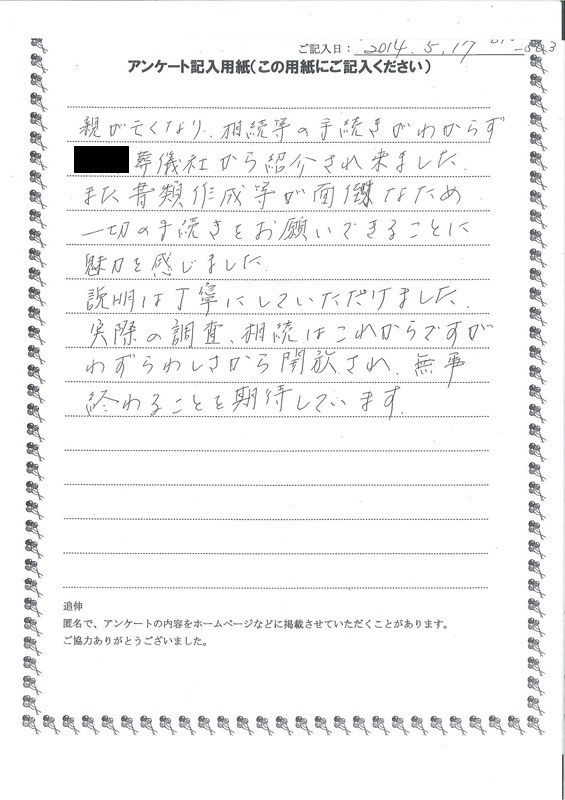 ご記入日: 2014.5.17
アンケート記入用紙(この用紙にご記入ください)
親が亡くなり、相続等の手続きがわからず
葬儀社から紹介され来ました.
また書類作成等が面倒なため
一切の手続きをお願いできることに
魅力を感じました.
説明は丁寧にしていただけました.
実際の調査、相続はこれからですが
わずらわしさから開放され、無事
終わることを期待しています.
追伸
匿名で、アンケートの内容をホームページなどに掲載させていただくことがあります。
ご協力ありがとうございました。